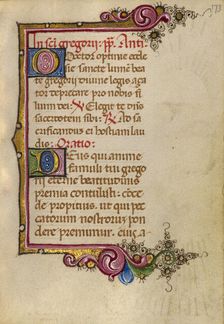 In sci gregorij: pp. Anti.
Doctor optime eccle
sie sancte lumē bea
te gregorij diuine legis ama
tor deprecare pro nobis filium
dei ℟ Elegit te dn̄s
sacerdotem sibi: ℟ Ad sa
crificandū ei hostiam lau
dis: Oratio:
Deus qui anime
famuli tui grego
rij eterne beatitudinis
premia contulisti: cōce
de propitius. ut qui pec
catorum nostrorum pon
dere premimur. eius a